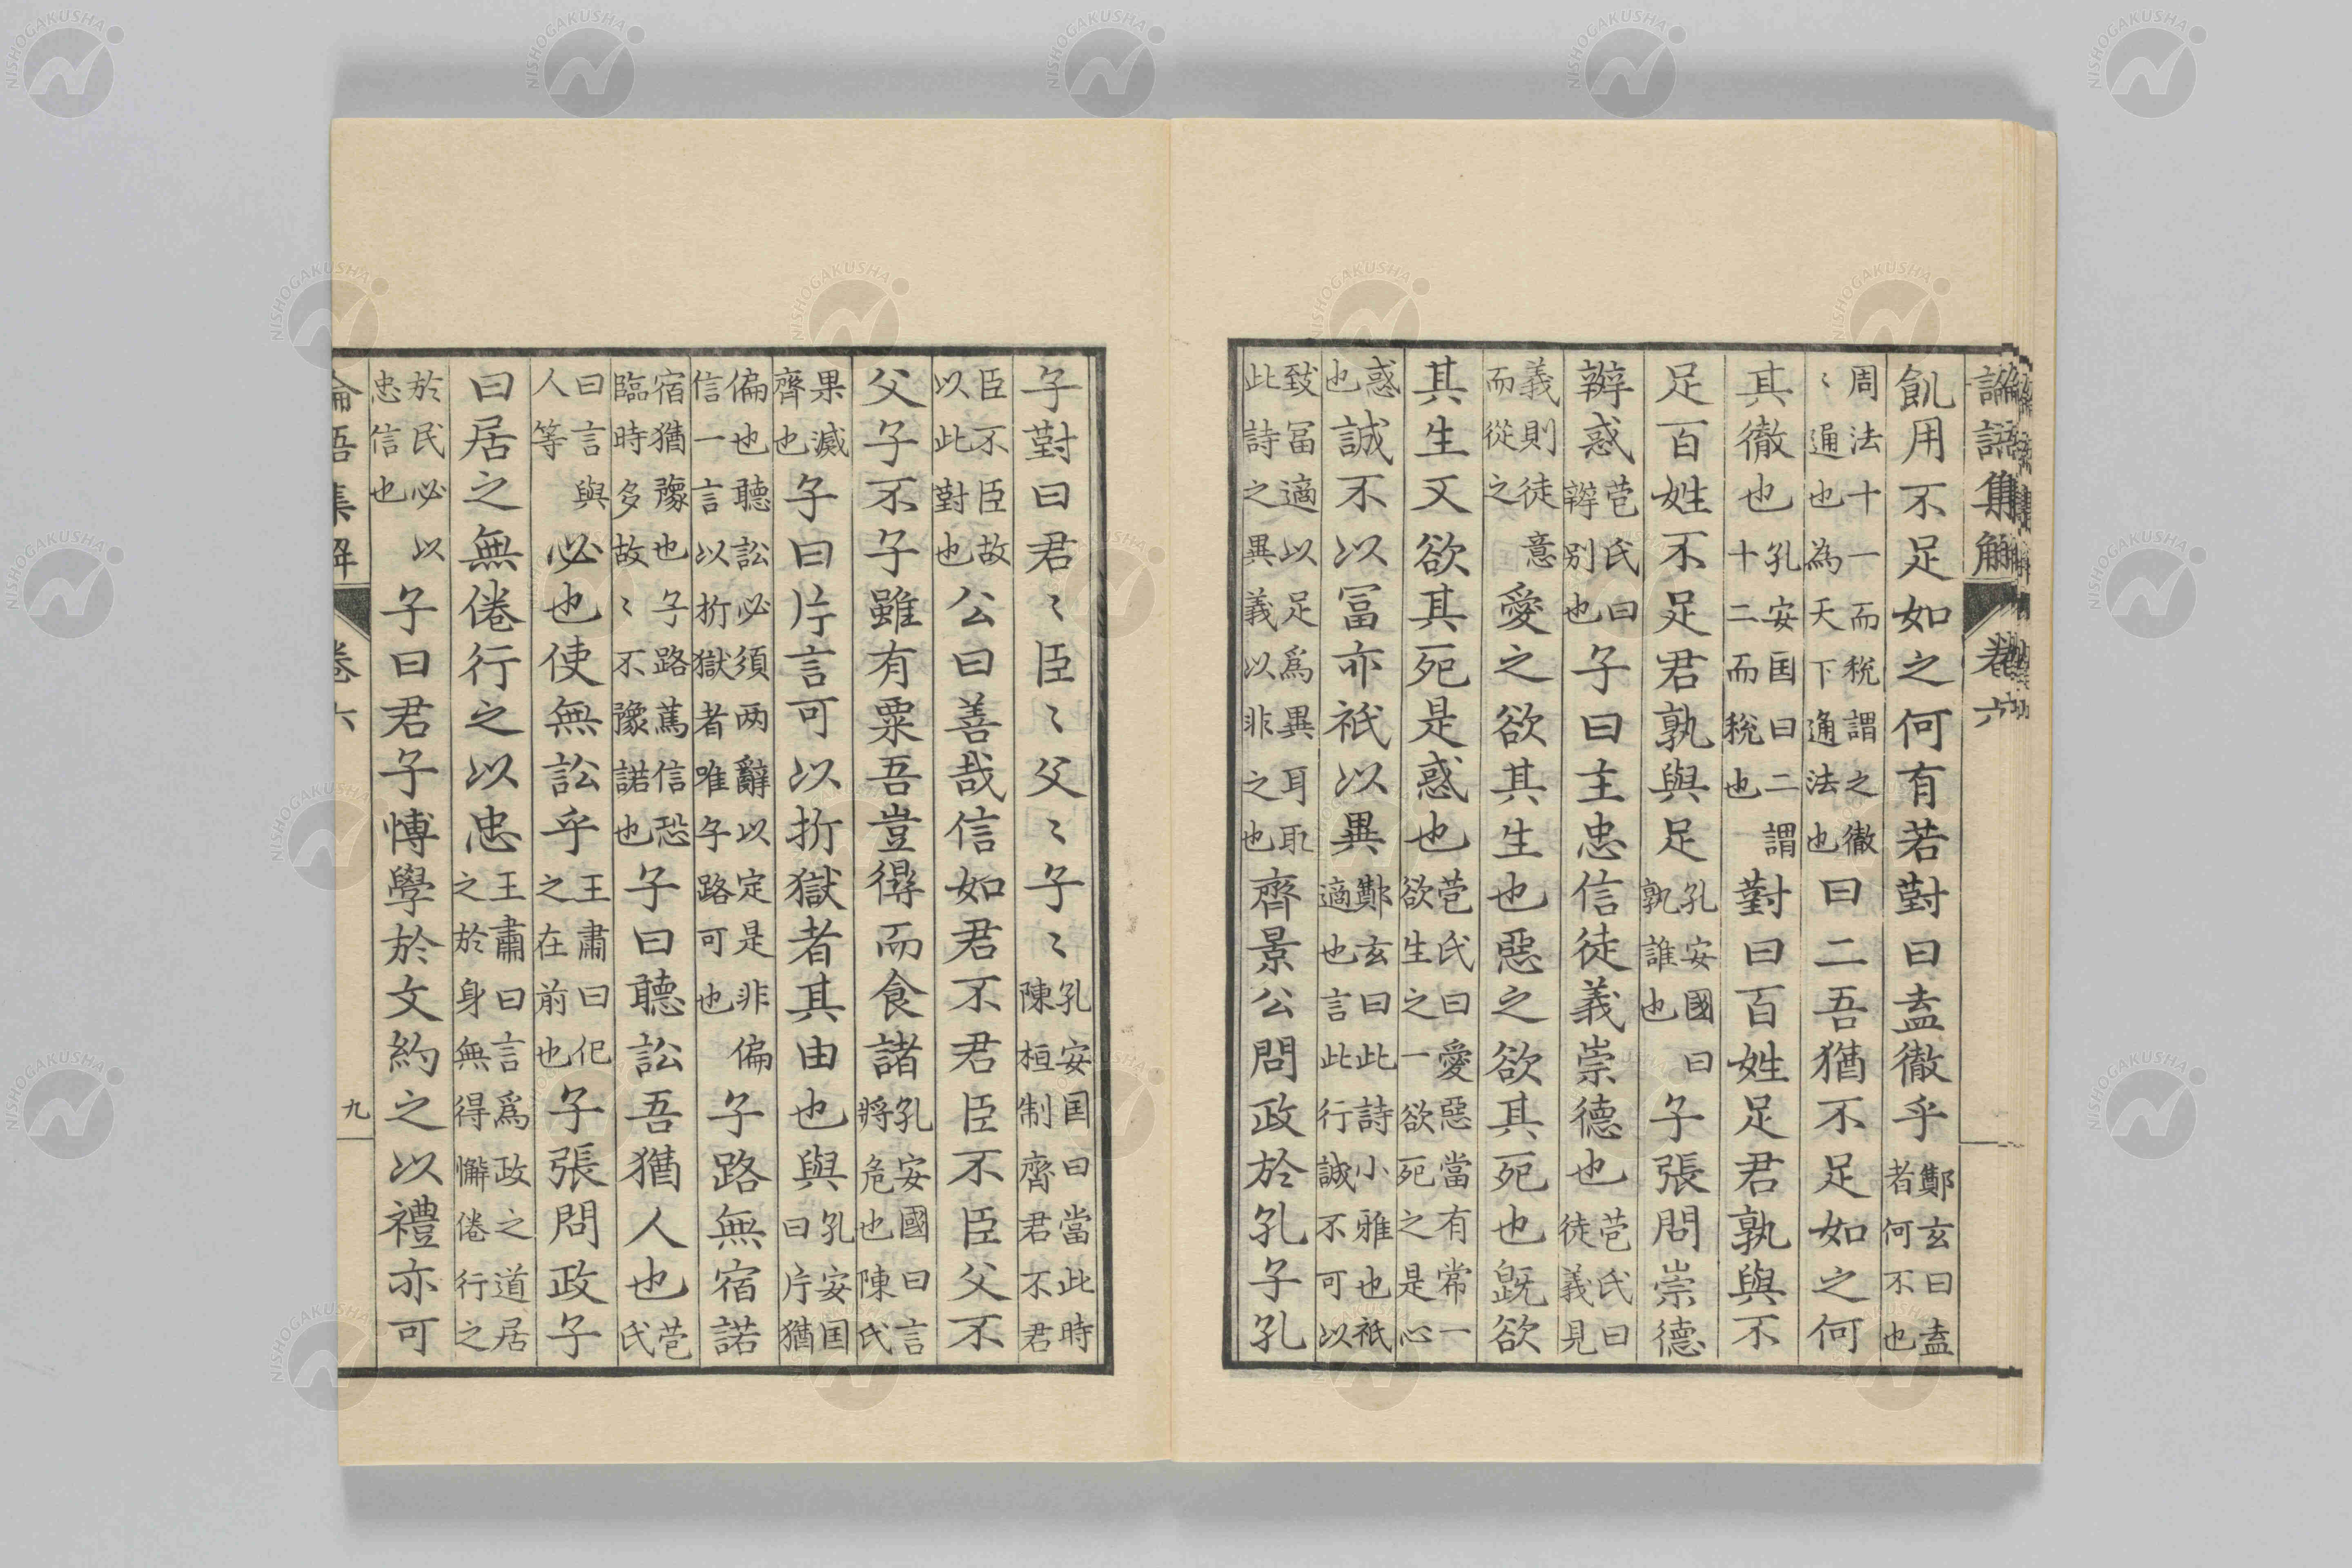 論語集解 卷六
飢用不足如之何有若對曰盍徹乎鄭玄曰盍者何不也
周法十一而稅謂之徹〻通也為天下通法也曰二吾猶不足如之何
其徹也孔安国曰二謂十二而稅也對曰百姓足君孰與不
足百姓不足君孰與足孔安國曰孰誰也子張問崇德
辨惑苞氏曰辨別也子曰主忠信徒義崇德也苞氏曰徒義見
義則徒意而從之愛之欲其生也惡之欲其死也既欲
其生又欲其死是惑也苞氏曰愛惡當有常一欲生之一欲死之是心
惑也誠不以冨亦祇以異鄭玄曰此詩小雅也祇適也言此行誠不可以
致冨適以足爲異耳取此詩之異義以非之也齊景公問政於孔子孔
子對曰君〻臣〻父〻子〻孔安国曰當此時陳桓制齊君不君
臣不臣故以此對也公曰善哉信如君不君臣不臣父不
父子不子雖有粟吾豈得而食諸孔安國曰言將危也陳氏
果滅齊也子曰片言可以折獄者其由也與孔安国曰片猶
偏也聽訟必須两辭以定是非偏信一言以折獄者唯子路可也子路無宿諾
宿猶豫也子路篤信恐臨時多故〻不豫諾也子曰聽訟吾猶人也苞氏
曰言與人等必也使無訟乎王肅曰化之在前也子張問政子
曰居之無倦行之以忠王肅曰言爲政之道居之於身無得懈倦行之
於民必以忠信也子曰君子博學於文約之以禮亦可
論語集解 卷六 九
NISHOGAKUSHA